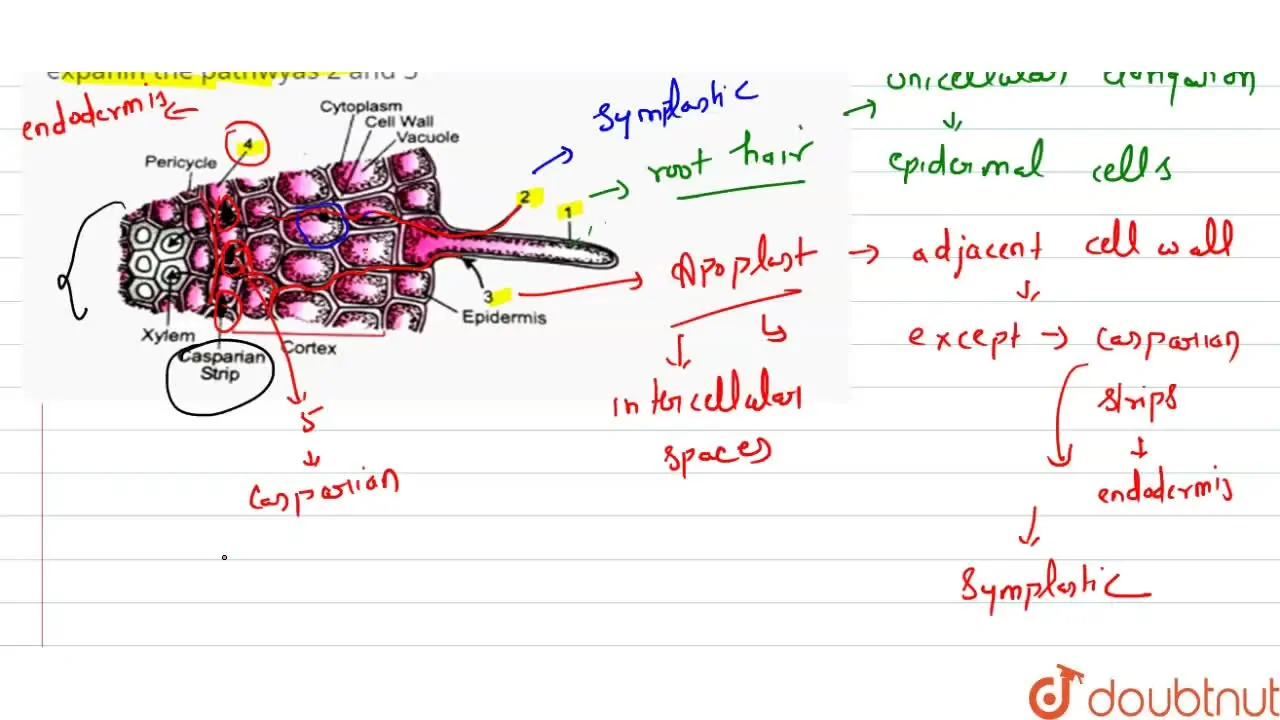 expanin the pathwyas 2 and 3
unicellular elongation
endodermis
Symplastic
Cytoplasm
Cell Wall
Vacuole
4
Pericycle
root hair
epidermal cells
2
1
Apoplast
adjacent cell wall
3
Epidermis
Xylem
Casparian
Strip
Cortex
except → casparian
strips
intercellular
spaces
5
casparian
endodermis
Symplastic
doubtnut